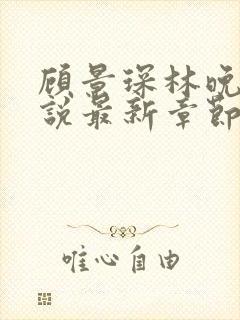 顾景琛林晚
說最新章節
唯心自由